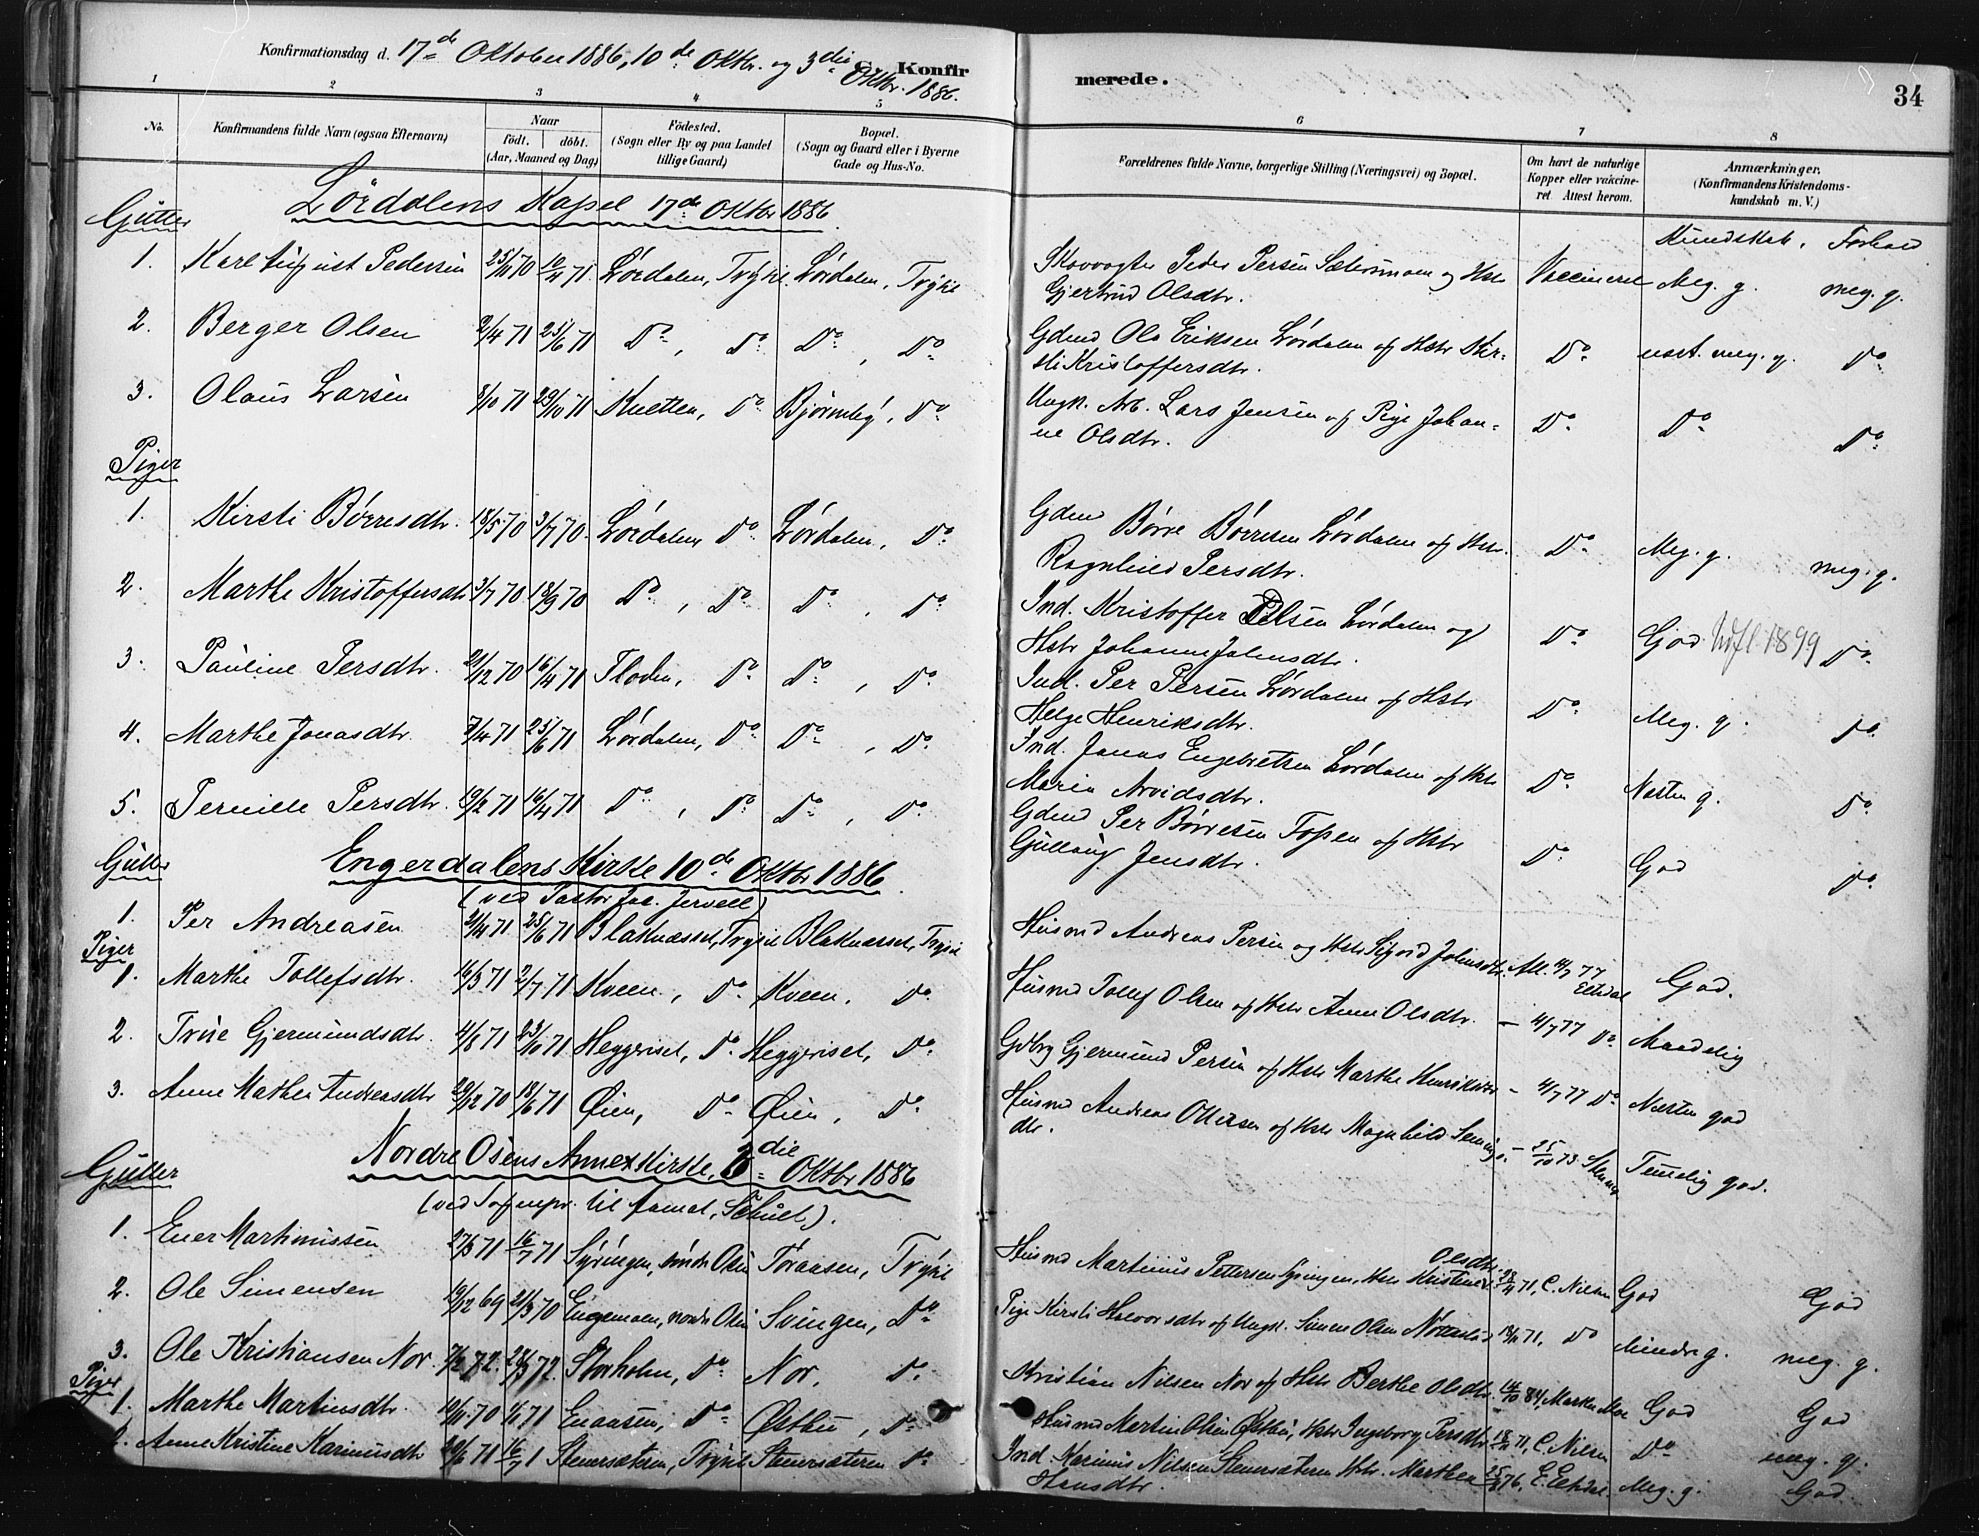 Konfirmationsdag d. 17de Oktober 1886, 10de Oktbr. og 3die Oktbr. 1886.
Konfirmerede.
34
1 2 3 4 5 6 7 8
No. Konfirmandens fulde Navn (ogsaa Efternavn) Naar født. døbt. (Aar, Maaned og Dag) Fødested. (Sogn eller By og paa Landet tillige Gaard) Bopæl. (Sogn og Gaard eller i Byerne Gade og Hus-No. Forældrenes fulde Navne, borgerlige Stilling (Næringsvei) og Bopæl. Om havt de naturlige Kopper eller vaccineret. Attest herom. Anmærkninger. (Konfirmandens Kristendomskundskab m. V.)
Lørdalens Kapel 17de Oktbr 1886.
Gutter
Kundskab. Forhold
1. Karl August Pedersen 25/11 70 10/4 71. Lørdalen, Trysil. Lørdalen, Trysil Skovvogter Peder Persen Sætermoen og Hstr Vaccineret Meg. g. meg. g.
Gjertrud Olsdtr.
2. Berger Olsen 2/4 71 25/6 71 Do, Do Do, Do Gdmd Ole Eriksen Lørdalen og Hstr Kir- Do næst. meg. g. Do
sti Kristoffersdtr.
3. Olaus Larsen 3/10 71 29/10 71 Knetten, Do Bjørneby, Do Ungk. Arb. Lars Jensen og Pige Johan- Do Do Do
ne Olsdtr.
Piger
1. Kirsti Børresdtr. 18/5 70 3/7 70. Lørdalen, Do Lørdalen, Do Gdmd Børre Børresen Lørdalen og Hstr. Do Meg. g. meg. g.
Ragnhild Persdtr.
2. Marthe Kristoffersdtr 3/7 70 18/9 70 Do, Do Do, Do Ind. Kristoffer Olsen Lørdalen og Do God Udfl. 1899 Do
Hstr Johanne Johnsdtr.
3. Pauline Persdtr. 21/12 70 16/4 71 Floden, Do Do, Do Ind. Per Persen Lørdalen og Hstr Do Meg. g. Do
Helge Henriksdtr.
4. Marthe Jonasdtr. 7/4 71 25/6 71 Lørdalen, Do Do, Do Ind. Jonas Engebretsen Lørdalen og Hstr Do Næsten g. Do
Maria Arvidsdtr.
5. Pernille Persdtr. 19/2 71 16/4 71 Do, Do Do, Do Gdmd Per Børresen Fossen og Hstr Do God Do
Gullaug Jensdtr.
Gutter Engerdalens Kirke 10de Oktbr 1886.
(ved Pastor Jac. Jervell)
1. Per Andreasen 21/4 71 25/6 71 Blaknesset, Trysil Blaknesset, Trysil Husmd Andreas Persen og Hstr Sigrid Johnsdtr. Att. 4/7 77 Elshdal God.
Piger
1. Marthe Tollefsdtr. 16/3 71 2/7 71 Kveen, Do Kveen, Do Husmd Tollef Olsen og Hstr Anne Olsdtr. – 4/7 77 Do Maadelig
2. Trine Gjermundsdtr. 4/8 71 23/10 71 Heggeriset, Do Heggeriset, Do Gdbrg Gjermund Persen og Hstr Marthe Henriksdtr – 4/7 77 Do Næsten god
3. Anne Mathea Andreasdtr 29/12 70 18/6 71 Øien, Do Øien, Do Husmd Andreas Ottersen og Hstr Magnhild Semings- – 25/10 73 Temmelig god.
dtr.
Gutter Nordre Osens Annexkirke, 3die Oktbr 1886
(ved Sognepr. til Aamot, Schult).
1. Ener Martinussen 27/3 71 16/7 71 Syringen, søndr Osen Toraasen, Trysil Husmd Martinus Pettersen Syringen, Hstr Kristine Olsdtr. 28/11 71, C. Nielsen God God
2. Ole Simensen 19/12 69 21/3 70 Engemoen, nordr Osen Svingen, Do Pige Kirsti Halvorsdtr og Ungk. Simen Olsen 18/11 71, Do Mindre g. meg. g.
3. Ole Kristiansen Nor. 7/2 72. 24/3 72. Storholm, Do Nor, Do Kristian Nilsen Nor og Hstr Berthe Olsdtr. 14/10 84, God God
Piger
1. Marthe Martinsdtr. 19/11 70 71 Enaasen, Do Østby, Do Husmd Martin Olsen Østby, Hstr Ingeborg Persdtr 18/11 71, C. Nielsen Do meg. g.
2. Anne Kristine Karinusdtr 20/6 71 16/7 71 Stenersæteren, Trysil Stenersæteren Do Ind. Karinus Nilsen Stenersæteren Hstr. Marthea 25/ 76, E. Elshdal. Meg. g. God
Hansdtr.